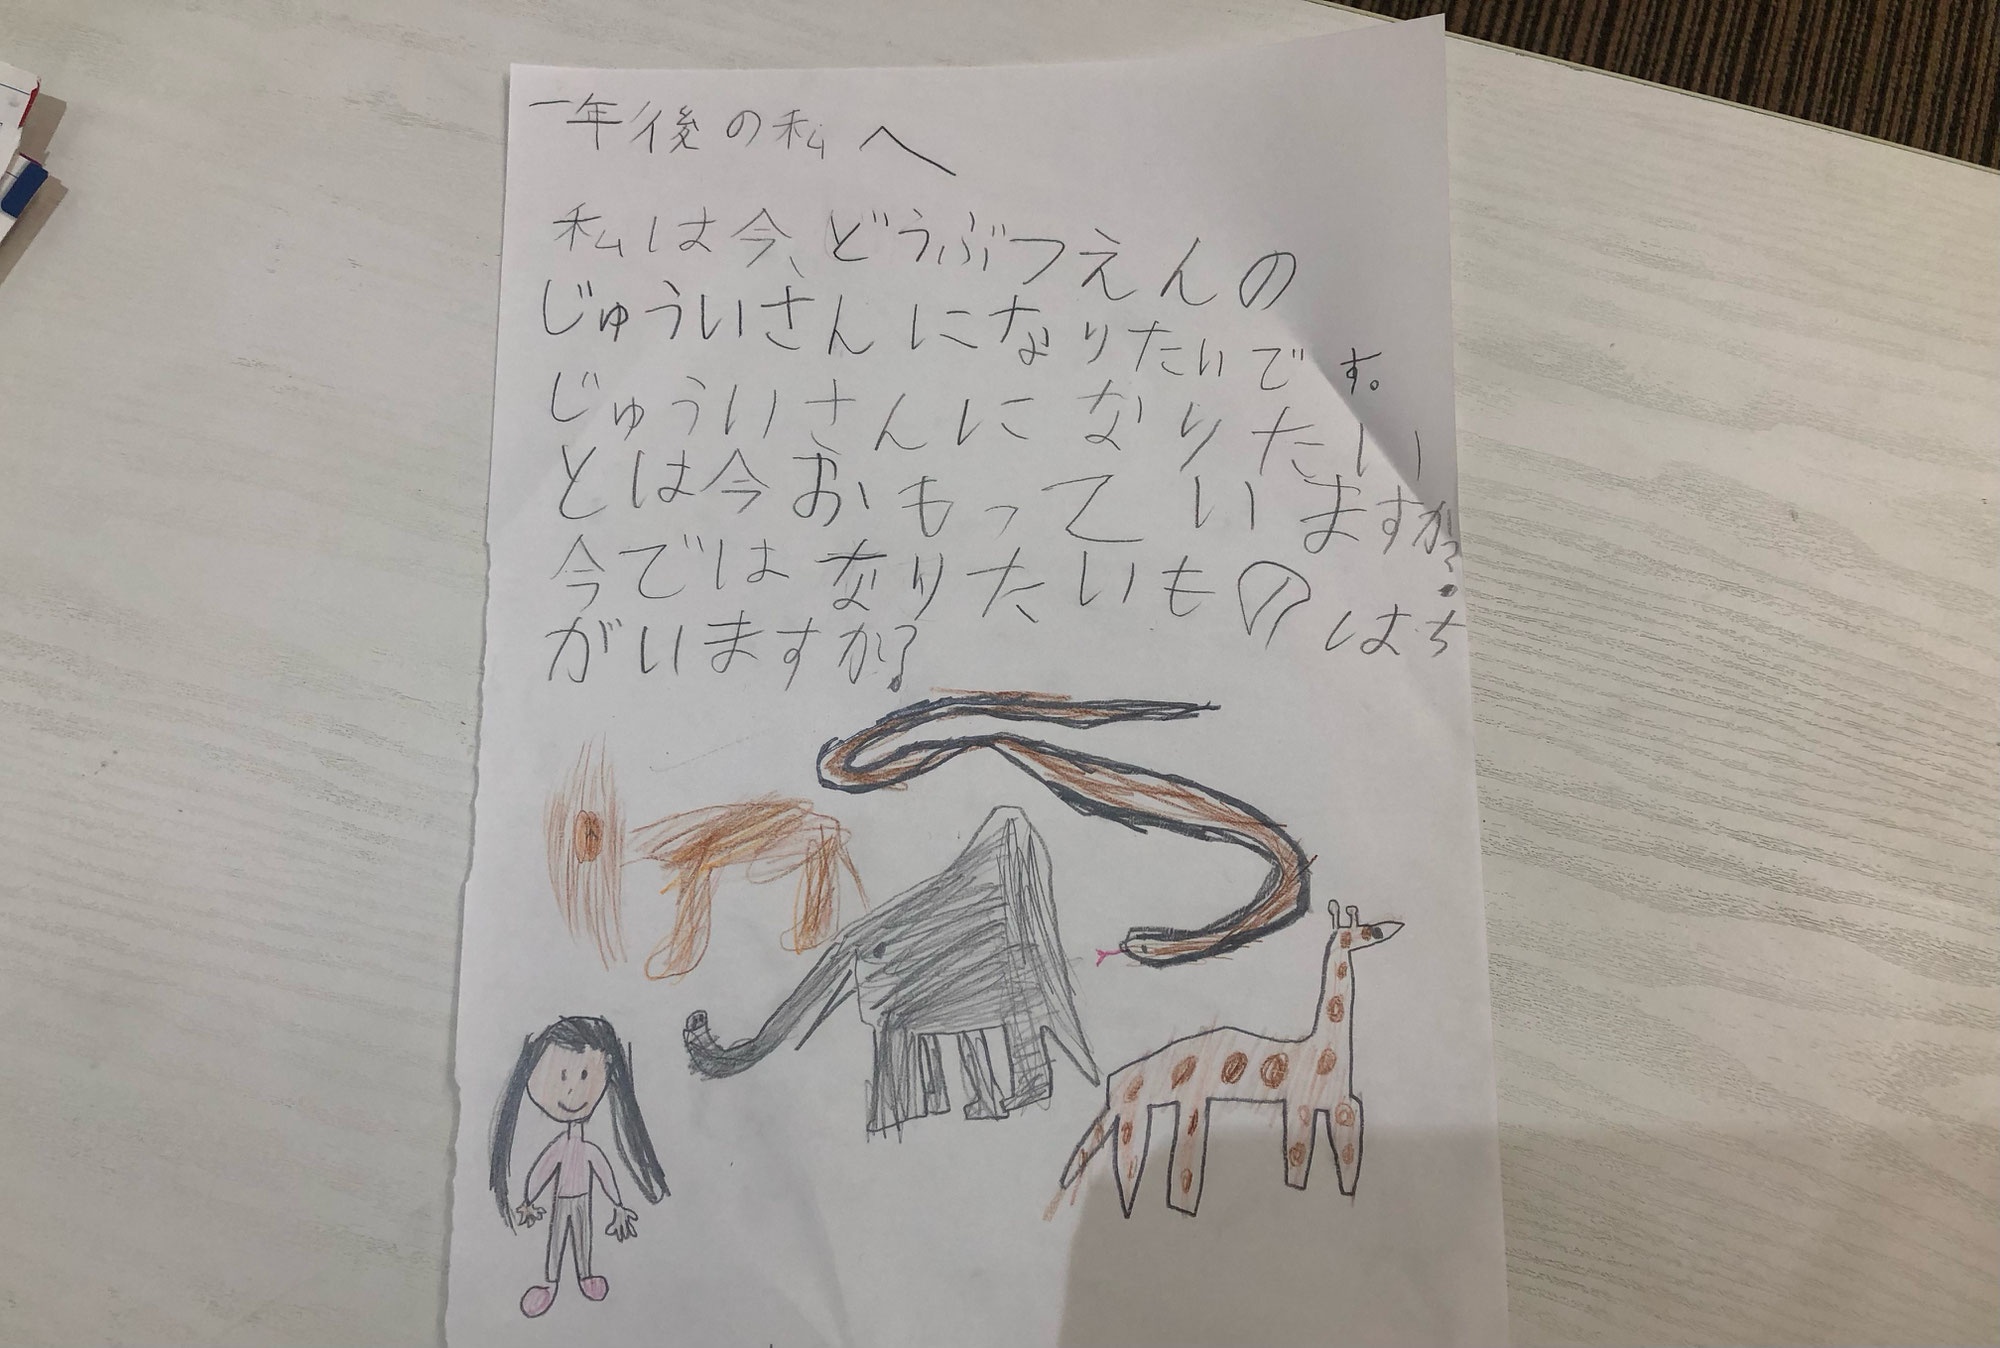 一年後の私へ
私は今、どうぶつえんの
じゅういさんになりたいです。
じゅういさんになりたい
とは今おもっていますか?
今ではなりたいものはち
がいますか?